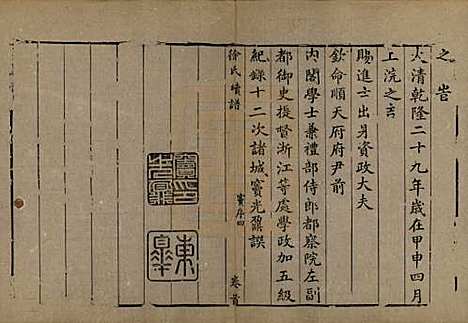 之吉
大清乾隆二十九年歲在甲申四月
上浣之吉
賜進士出身資政大夫
欽命順天府府尹前
內閣學士兼禮部侍郎都察院左副
都御史提督浙江等處學政加五級
紀錄十二次諸城竇光鼐譔
徐氏續譜
竇序四
卷首
東皋